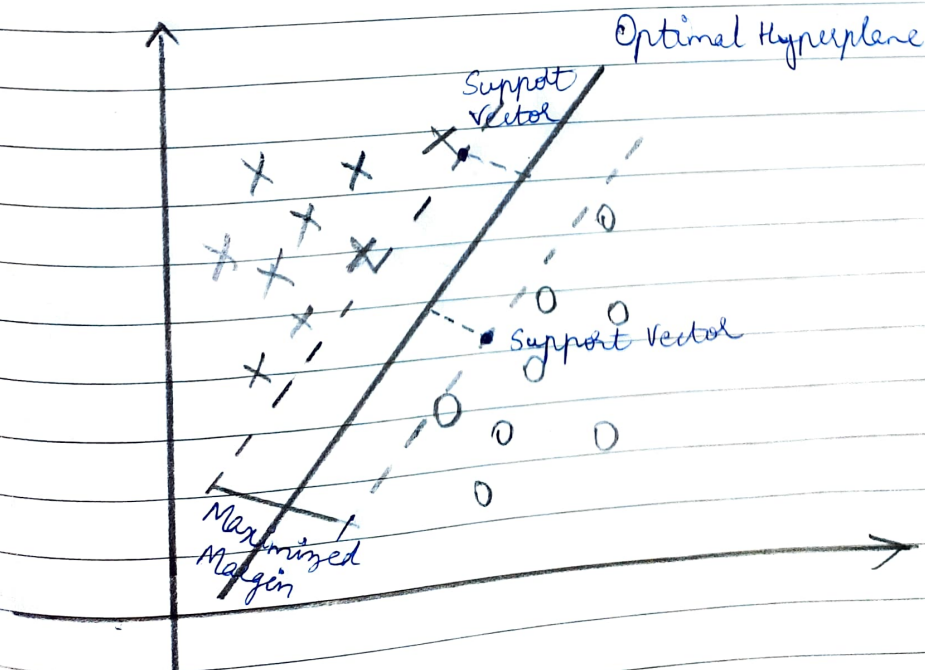 Optimal Hyperplane
Support
Vector
Support Vector
Maximized
Margin